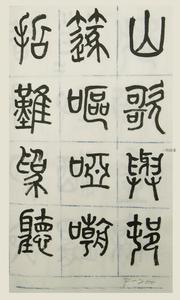 山歌與村
笛嘔啞嘲
哳難為聽